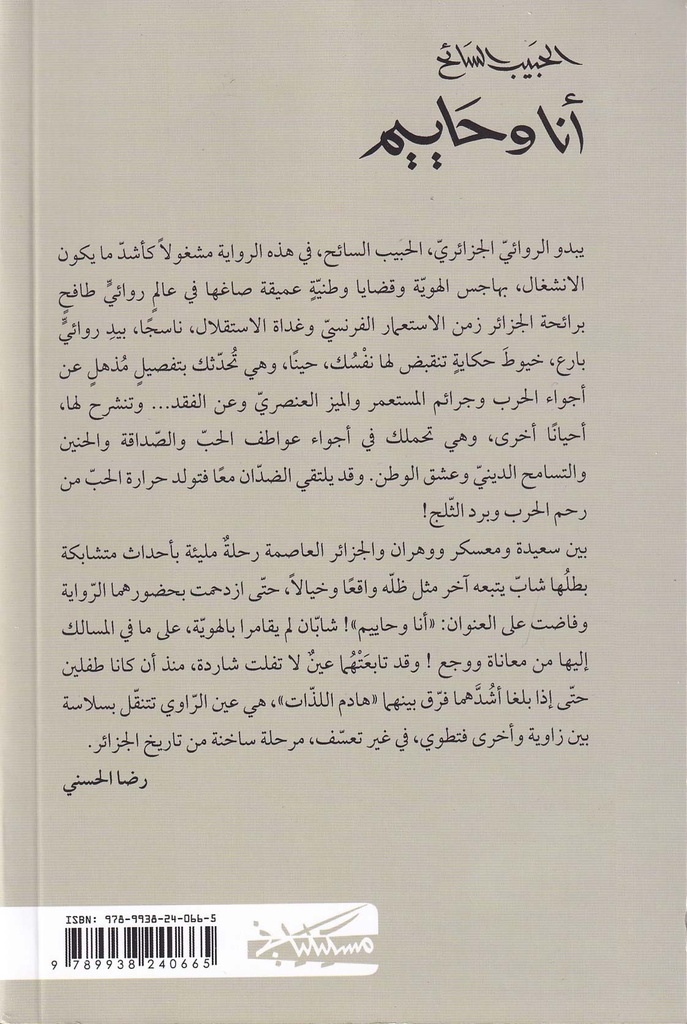 الحبيب السائح
أنا وحاييم
يبدو الروائيّ الجزائريّ، الحبيب السائح، في هذه الرواية مشغولاً كأشدّ ما يكون
الانشغال، بهاجس الهويّة وقضايا وطنيّةٍ عميقة صاغها في عالمٍ روائيٍّ طافحٍ
برائحة الجزائر زمن الاستعمار الفرنسيّ وغداة الاستقلال، ناسجًا، بيدِ روائيٍّ
بارع، خيوطَ حكايةٍ تنقبض لها نفْسُك، حينًا، وهي تُحدّثك بتفصيلٍ مُذهلٍ عن
أجواء الحرب وجرائم المستعمر والميز العنصريّ وعن الفقد... وتنشرح لها،
أحيانًا أخرى، وهي تحملك في أجواء عواطف الحبّ والصّداقة والحنين
والتسامح الدينيّ وعشق الوطن. وقد يلتقي الضدّان معًا فتولد حرارة الحبّ من
رحم الحرب وبرد الثّلج!
بين سعيدة ومعسكر ووهران والجزائر العاصمة رحلةٌ مليئة بأحداث متشابكة
بطلُها شابّ يتبعه آخر مثل ظلّه واقعًا وخيالاً، حتّى ازدحمت بحضورهما الرّواية
وفاضت على العنوان: «أنا وحاييم»! شابّان لم يقامرا بالهويّة، على ما في المسالك
إليها من معاناة ووجع ! وقد تابعَتْهُما عينٌ لا تفلت شاردة، منذ أن كانا طفلين
حتّى إذا بلغا أشُدَّهما فرّق بينهما «هادم اللذّات»، هي عين الرّاوي تتنقّل بسلاسة
بين زاوية وأخرى فتطوي، في غير تعسّف، مرحلة ساخنة من تاريخ الجزائر.
رضا الحسني
ISBN: 978-9938-24-066-5
9 789938 240665
مسكيلياني